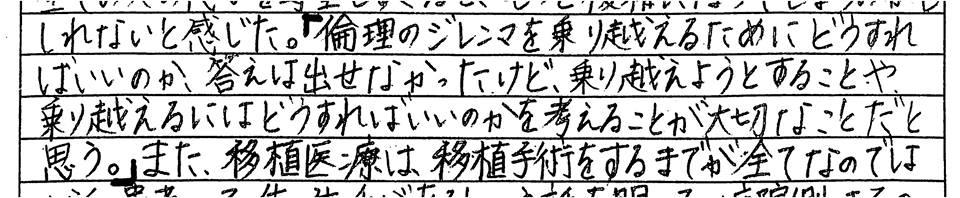 しれないと感じた。「倫理のジレンマを乗り越えるためにどうすれ
ばいいのか、答えは出せなかったけど、乗り越えようとすることや、
乗り越えるにはどうすればいいのかを考えることが大切なことだと
思う。」また、移植医療は、移植手術をするまでが全てなのでは